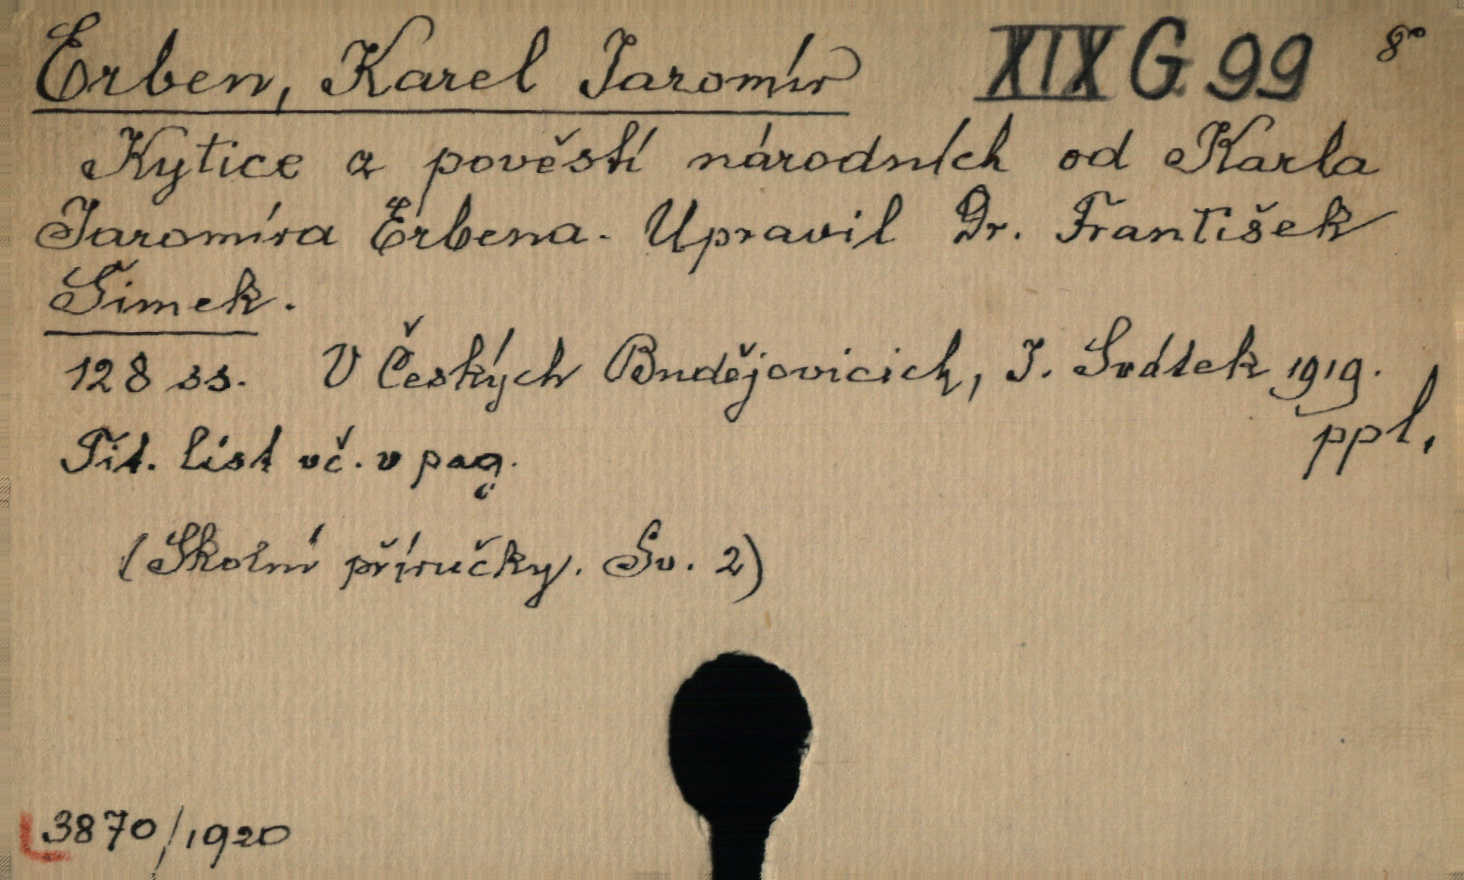 Erben, Karel Jaromír XIX G 99 8°
Kytice z pověstí národních od Karla
Jaromíra Erbena. Upravil Dr. František
Šimek.
128 ss. V Českých Budějovicích, J. Svátek 1919.
ppl.
Tit. list vč. v pag.
(Školní příručky. Sv. 2)
3870/1920